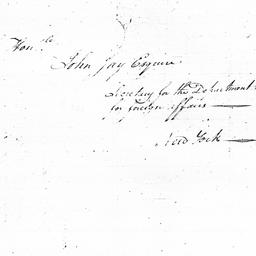 Hon.ble
John Jay Esquire
Secretary for the Department
for foreign affairs —
New York —